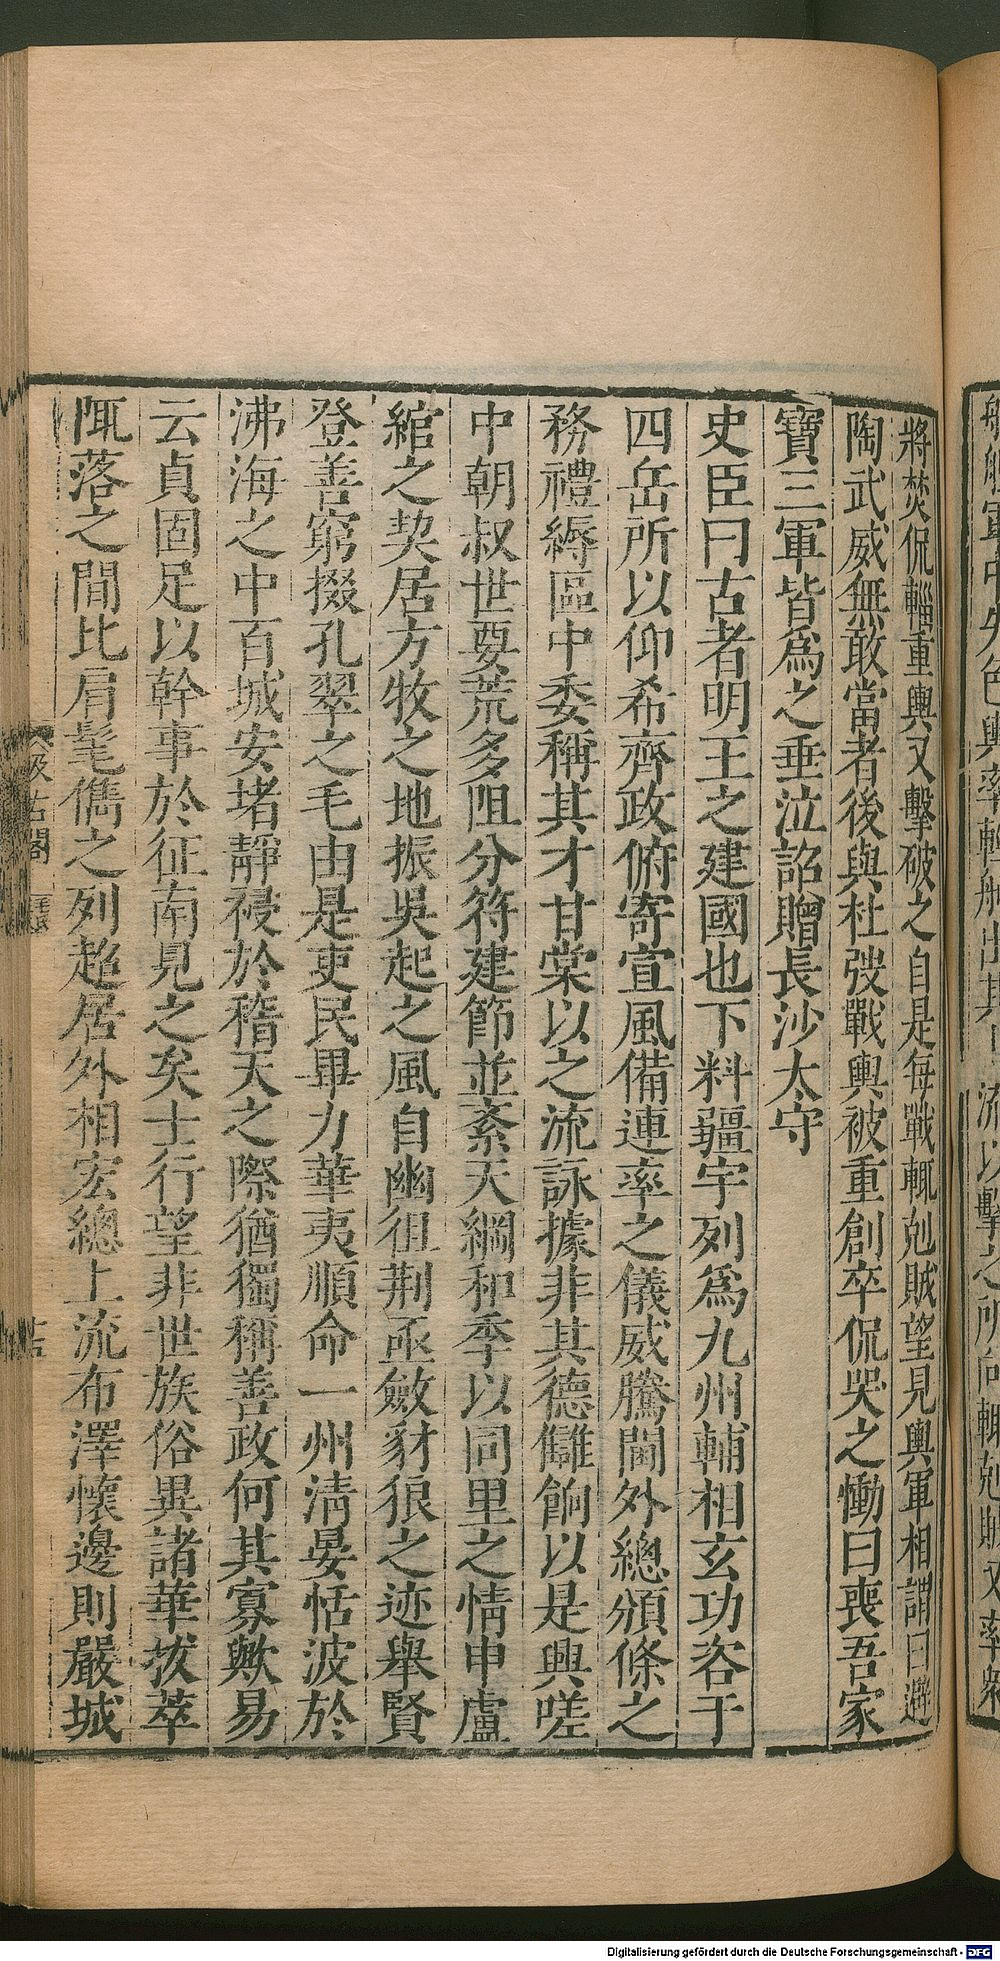 將焚侃輜重輿又擊破之自是每戰輒剋賊望見輿軍相謂曰避
陶武威無敢當者後與杜弢戰輿被重創卒侃哭之慟曰喪吾家
寶三軍皆爲之垂泣詔贈長沙太守
史臣曰古者明王之建國也下料疆宇列爲九州輔相玄功咨于
四岳所以仰希齊政俯寄宣風備連率之儀威騰閫外總頒條之
務禮縟區中委稱其才甘棠以之流詠據非其德讎餉以是興嗟
中朝叔世要荒多阻分符建節並紊天綱和季以同里之情申盧
綰之契居方牧之地振吳起之風自幽徂荆亟斂豺狼之迹舉賢
登善窮掇孔翠之毛由是吏民畢力華夷順命一州清晏恬波於
沸海之中百城安堵靜祲於稽天之際猶獨稱善政何其寡歟易
云貞固足以幹事於征南見之矣士行望非世族俗異諸華拔萃
陬落之間比肩髦儁之列超居外相宏總上流布澤懷邊則嚴城
汲古閣
Digitalisierung gefördert durch die Deutsche Forschungsgemeinschaft - DFG